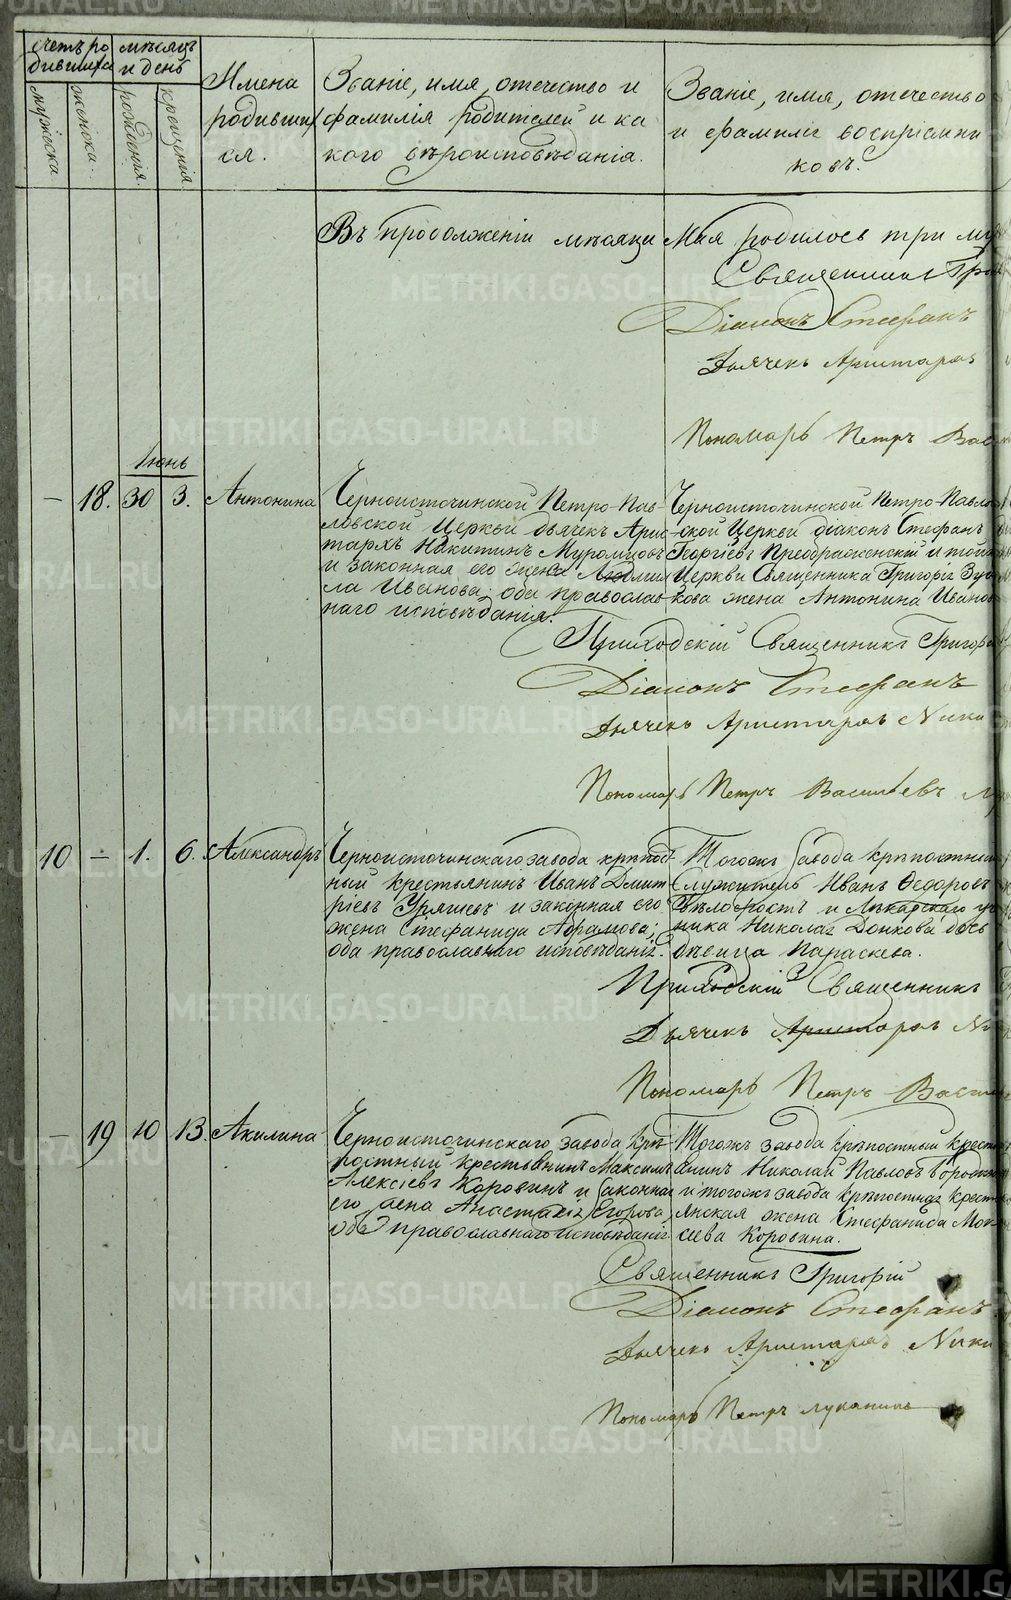 счетъ ро
дившихся
мѣсяцъ
и день
мужска
женска.
рожденія.
крещенія
Имена
родивших
ся.
Званіе, имя, отечество и
фамилія родителей и ка
кого вѣроисповѣданія.
Званіе, имя, отечество
и фамилія воспріемни
ковъ.
Въ продолженіи мѣсяца Мая родилось три му
Священникъ Гри
Діаконъ Стефанъ
Дьячекъ Аристархъ
Пономарь Петръ Вас
Іюнь
— 18. 30 3. Антонина
Черноисточинской Петро-Пав-
ловской Церкви дьячекъ Арис-
тархъ Никитинъ Муромцовъ
и законная его жена Людми
ла Иванова; оба православ
наго исповѣданія.
Черноисточинской Петро-Павло
ской Церкви діаконъ Стефанъ
Георгіевъ Преображенскій и той
Церкви Священника Григорія Зу
кова жена Антонина Иванов
Приходскій Священникъ Григор
Діаконъ Стефанъ
Дьячекъ Аристархъ Ники
Пономарь Петръ Васильевъ Лу
10 — 1. 6. Александръ
Черноисточинскаго завода крѣпост
ный крестьянинъ Иванъ Дмит
ріевъ Уряшевъ и законная его
жена Стефанида Абрамова;
оба православнаго исповѣданія.
Тогожъ Завода крѣпостный
Служитель Иванъ Ѳедоровъ
Бѣлохвостъ и Лѣкарскаго уч
ника Николая Донкова дочь
дѣвица Параскева.
Приходскій Священникъ
Дьячекъ Аристархъ Ни
Пономарь Петръ Васил
— 19 10 13. Акилина
Черноисточинскаго завода крѣ
постный крестьянинъ Максимъ
Алексіевъ Коровинъ и законная
его жена Анастасія Егорова,
оба православнаго исповѣданія
Тогожъ завода крѣпостный крестъ
янинъ Николай Павловъ Вороти
и тогожъ завода крѣпостная кресть
янская жена Стефанида Мои
сеева Коровина.
Священникъ Григорій
Діаконъ Стефанъ
Дьячекъ Аристархъ Ники
Пономарь Петръ Луканинъ
METRIKI.GASO-URAL.RU